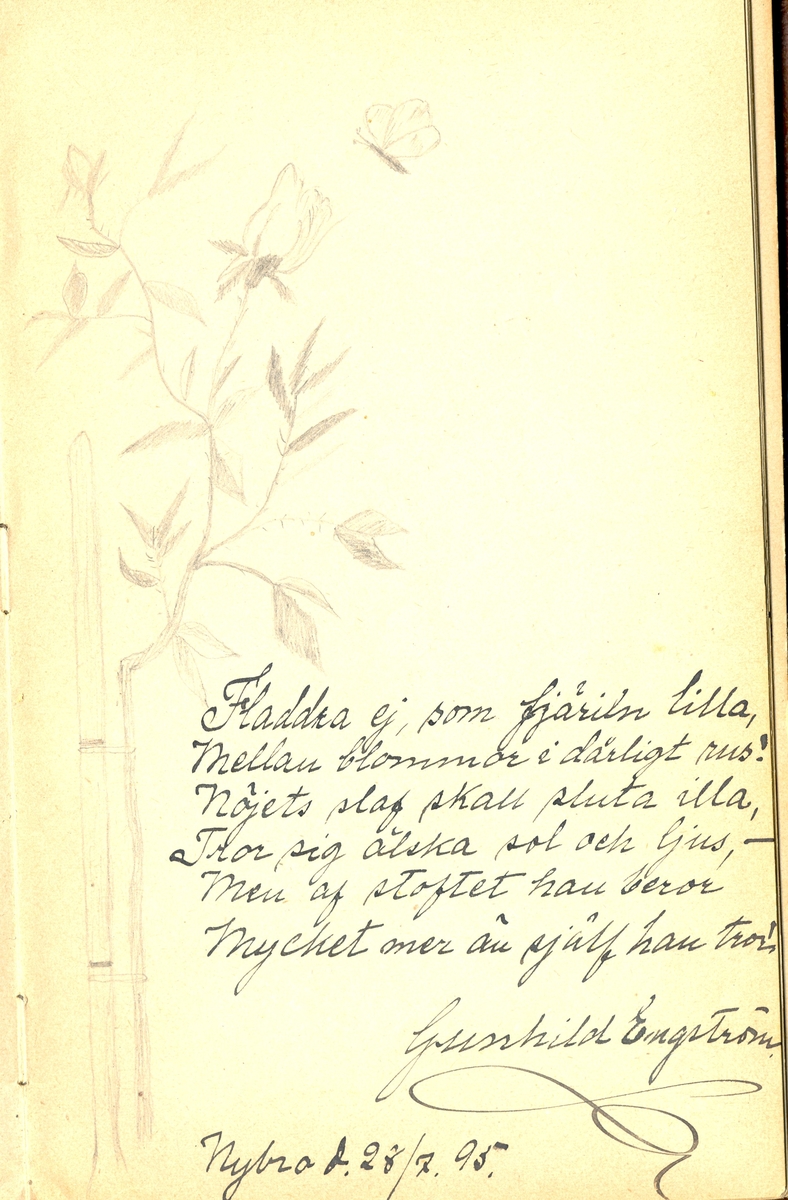 Fladdra ej, som fjäriln lilla,
Mellan blommor i dårligt rus!
Nöjets slaf skall sluta illa,
Tror sig älska sol och ljus, —
Men af stoftet han beror
Mycket mer än sjelf han tror.
Gunhild Engström.
Nybro d. 28/7. 95.